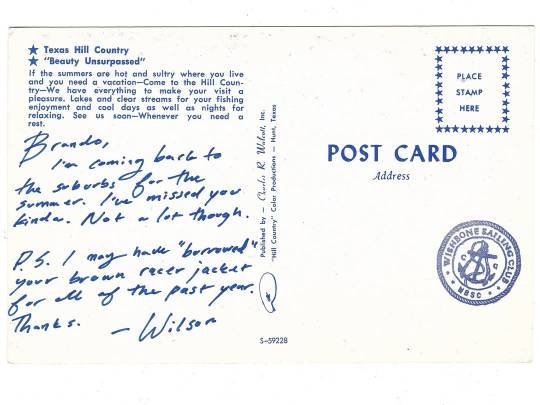 ★ Texas Hill Country
★ "Beauty Unsurpassed"
If the summers are hot and sultry where you live
and you need a vacation—Come to the Hill Coun-
try—We have everything to make your visit a
pleasure. Lakes and clear streams for your fishing
enjoyment and cool days as well as nights for
relaxing. See us soon—Whenever you need a
rest.
Brando,
I'm coming back to
the suburbs for the
summer. I've missed you
kinda. Not a lot though.
P.S. I may have "borrowed"
your brown racer jacket
for all of the past year.
Thanks. — Wilson
Published by — Charles R. Wolcott, Inc.
"Hill Country" Color Productions — Hunt, Texas
S-59228
PLACE
STAMP
HERE
POST CARD
Address
WISHBONE SAILING CLUB
WBSC